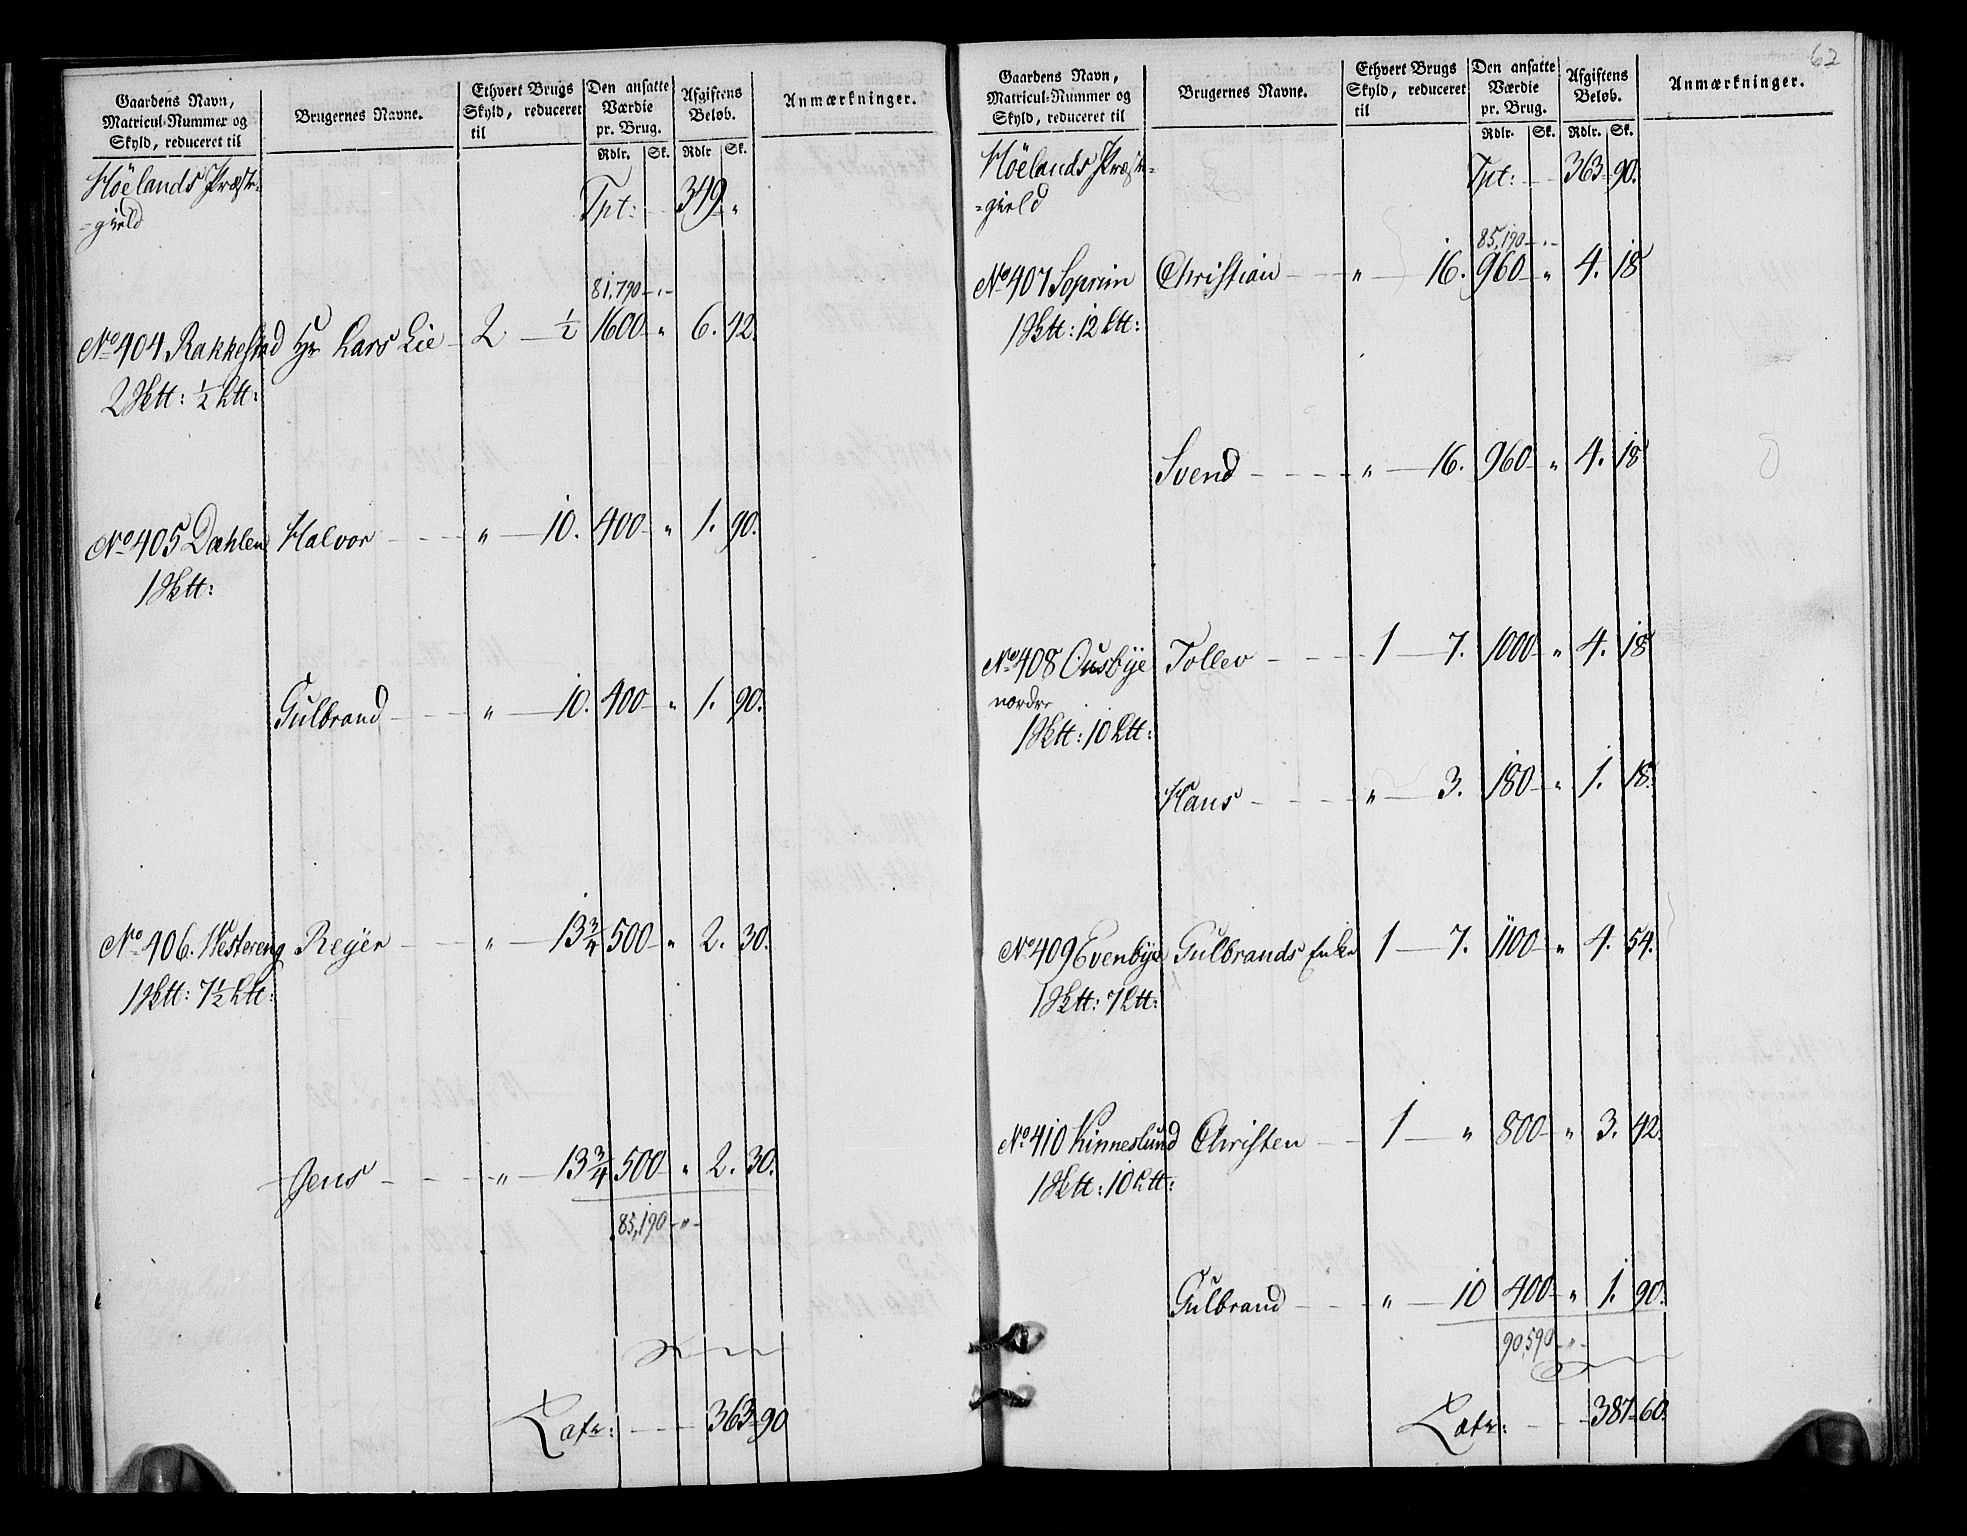 Gaardens Navn, Matricul-Nummer og Skyld, reduceret til | Brugernes Navne. | Ethvert Brugs Skyld, reduceret til | Den ansatte Værdie pr. Brug. Rdlr. Sk. | Afgiftens Beløb. Rdlr Sk. | Anmærkninger.
Höelands Præste-
=gield
Tpt: 349 "
81,790 "
No 404 Rakkestad Hr Lars Lie 2 ½ 1600 " 6. 42.
2 Sktt: ½ Ltt:
No 405 Dæhlen Halvor " 10. 400 " 1. 90.
1 Sktt:
Gulbrand " 10. 400 " 1. 90.
No 406. Westereng Reyer " 13¾ 500 " 2. 30.
1 Sktt: 7½ Ltt:
Jens " 13¾ 500 " 2. 30.
85,190 "
Latr: 363 90
62
Gaardens Navn, Matricul-Nummer og Skyld, reduceret til | Brugernes Navne. | Ethvert Brugs Skyld, reduceret til | Den ansatte Værdie pr. Brug. Rdlr. Sk. | Afgiftens Beløb. Rdlr. Sk. | Anmærkninger.
Höelands Præste-
=gield
Tpt: 363 90.
85,190 "
No 407 Soprim Christian " 16. 960 " 4. 18
1 Sktt: 12 Ltt:
Svend " 16. 960 " 4. 18
No 408 Ousbÿe Tollev 1 7. 1000 " 4. 18
nordre
1 Sktt: 10 Ltt:
Hans " 3. 180 " 1. 18.
No 409 Evenbye Gulbrands Enke 1 7. 1100 " 4. 54.
1 Sktt: 7 Ltt:
No 410 Kinneslund Christen 1 " 800 " 3. 42.
1 Sktt: 10 Ltt:
Gulbrand " 10 400 " 1. 90.
90,590 "
Latr: 387 60.